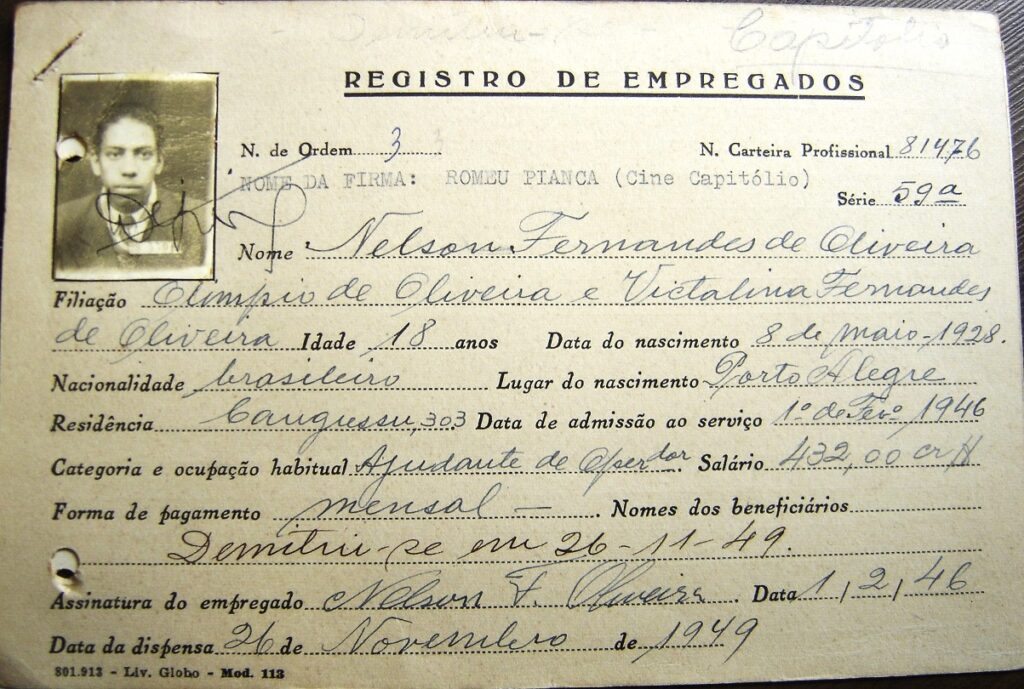 Demitiu-se - Capitólio
REGISTRO DE EMPREGADOS
N. de Ordem 3 N. Carteira Profissional 81476
NOME DA FIRMA: ROMEU PIANCA (Cine Capitólio)
Série 59a
Nome Nelson Fernandes de Oliveira
Filiação Olimpio de Oliveira e Victalina Fernandes
de Oliveira Idade 18 anos Data do nascimento 8 de maio-1928.
Nacionalidade brasileiro Lugar do nascimento Porto Alegre
Residência Cangussu, 303 Data de admissão ao serviço 1º de Fevº 1946
Categoria e ocupação habitual Ajudante de Operdor. Salário 432,00 cr$
Forma de pagamento mensal - Nomes dos beneficiários
Demitiu-se em 26-11-49.
Assinatura do empregado Nelson F. Oliveira Data 1, 2, 46
Data da dispensa 26 de Novembro de 1949
801.913 - Liv. Globo - Mod. 113